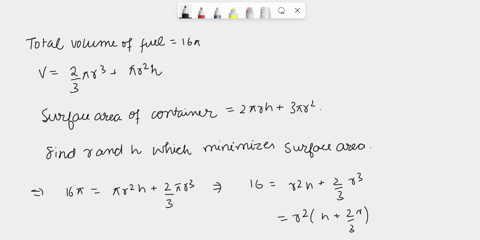 Total volume of fuel = 16π
V = 2/3 πr³ + πr²h
Surface area of container = 2πrh + 3πr².
find r and h which minimizes surface area.
⇒ 16π = πr²h + 2/3 πr³ ⇒ 16 = r²h + 2/3 r³
= r²(h + 2r/3)